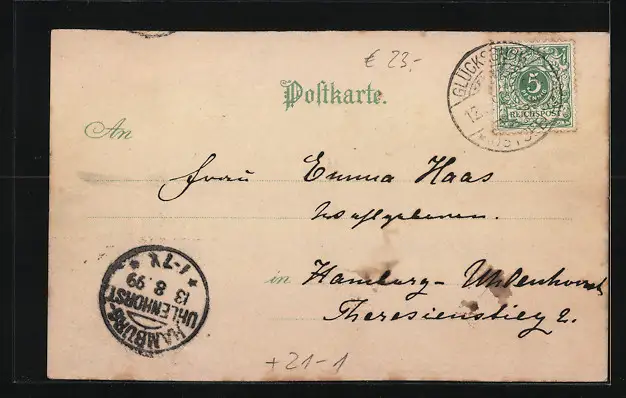 € 23,-
Postkarte.
GLÜCKSBURG
12.
5
REICHSPOST
An
Frau Emma Haas
Wohlgeboren.
in Hamburg-Uhlenhorst
Theresienstieg 2.
HAMBURG
UHLENHORST
13 8 99
1-7 N
+21-1